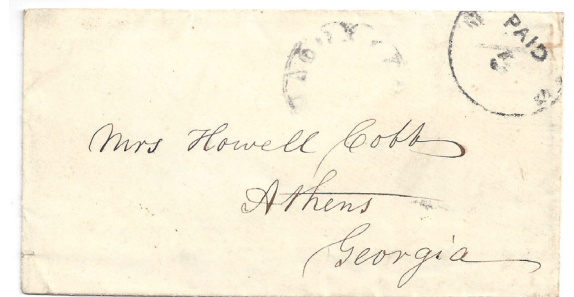 PAID
Mrs Howell Cobb
Athens
Georgia